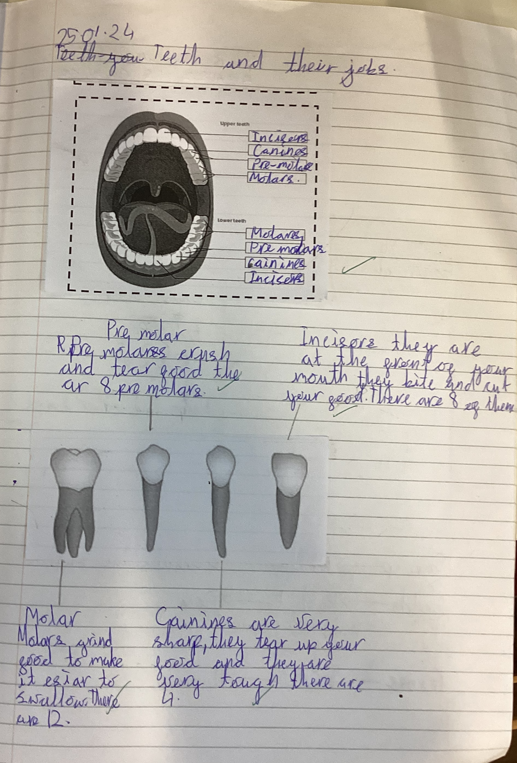 25.01.24
Teeth you Teeth and their jobs.
Upper teeth
Incisors
Canines
Pre-molar
Molars.
Lower teeth
Molares
Pre molars
Cainines
Incisors
Pre molar
Pre molares crush
and tear food the
ar 8 pre molars.
Incisors they are
at the front of your
mouth they bite and cut
your food. There are 8 of them
Molar
Molars grind
food to make
it esiar to
swallow. there
are 12.
Cainines are very
sharp, they tear up your
food and they are
very tough there are
4.